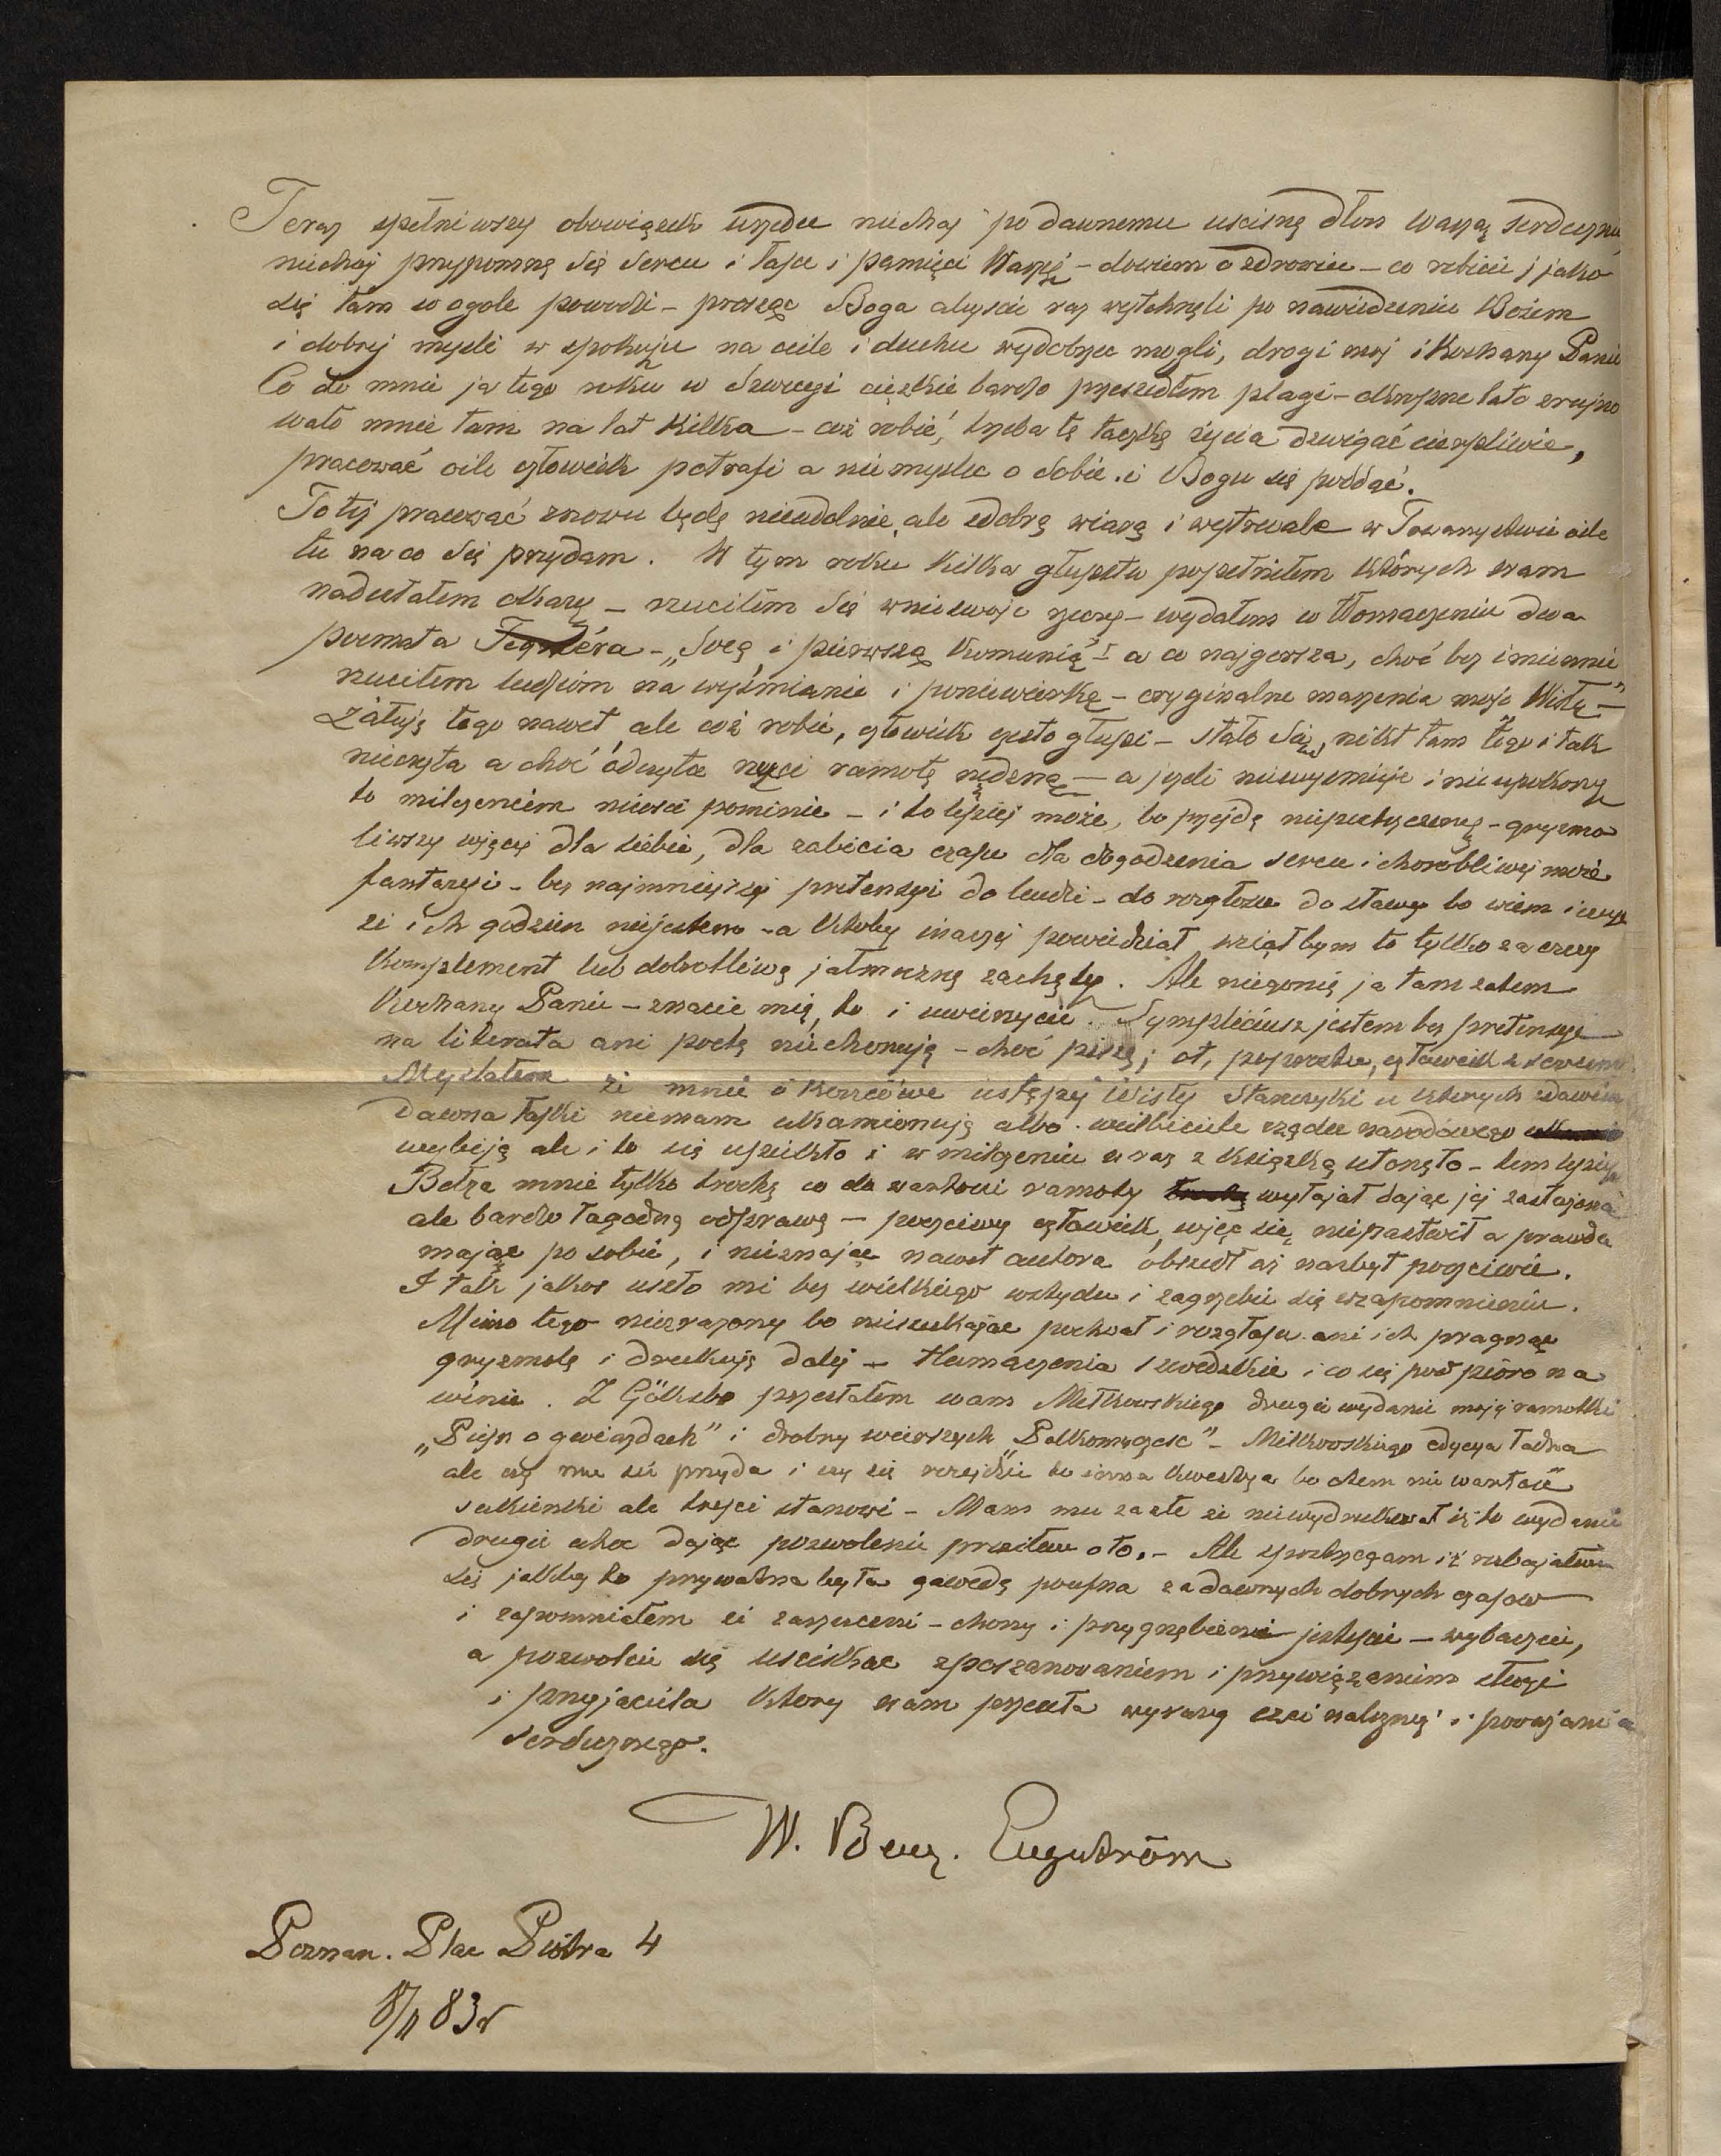 Teraz spełniwszy obowiązek urzędu niechaj po dawnemu uscisnę dłon Waszą serdecznie
niechaj przypomnę się sercu i łasce i pamięci Waszej – dowiem o zdrowiu – co robicie i jako
się tam w ogole powodzi – prosząc Boga abyscie raz wytchnęli po nawiedzeniu Bożem
i dobrej mysli w spokoju na ciele i duchu wydobyc mogli, drogi moj i Kochany Panie
Co do mnie ja tego roku w Szwecyi cięzkie bardzo przeszedłem plagi – okropne lato zrujno
wało mnie tam na lat Kilka – coż robić, trzeba tę taczkę życia dzwigać cierpliwie,
pracować o ile człowiek potrafi a nie myslec o sobie. i Bogu się poddać.
To tej pracować znowu będę nieudolnie ale z dobrą wiarą i wytrwale w Towarzystwie o ile
tu na co się przydam. W tym roku Kilka głupstw popełniłem których wam
nadesłałem okazy – rzuciłem się w nie swoje rzeczy – wydałem w tłomaczeniu dwa
poemata Tegnéra – „Sveą i pierwszą Komunią" – a co najgorsza, choć bez imiennie
rzuciłem ludziom na wyśmianie i poniewierkę – oryginalne marzenia moje Wisłę" –
żałuję tego nawet, ale coż robic, człowiek często głupi – stało się, nikt tam tego i tak
nieczyta a choć odczyta rzuci ramotę nędzną – a jesli niewysmieje i nieupokorzy
to milczeniem niesci pominie – i to lepiej może, bo przejdę niepostrzeżenie – gryzmo
liwszy więcej dla siebie, dla zabicia czasu dla dogodzenia sercu i chorobliwej może
fantazyi – bez najmniejszej pretensyi do ludzi – do rozgłosu do sławy bo wiem i czuję
że ich godzien niejestem – a ktoby inaczej powiedział wziąłbym to tylko za czczy
Komplement lub dobrotliwą jałmużnę zachęty. Ale niegonię ja tam zatem
Kochany Panie – znacie mię, to i uwierzycie. Sympliciusz jestem bez pretensyi
na literata ani poetę niechoruję – choć piszę; ot, poprostu, człowiek z sercem.
Myslałem że mnie o Koncowe ustępy Wisły Stanczyki u których zdawien
dawna łaski niemam ukamionują albo wielbiciele rządu narodowego
wybiją ale i to się upiekło i w milczeniu wraz z Książką utonęło – tem lepiej
Bełza mnie tylko trochę co do wartosci ramoty wyłajał dając jej zasłużoną
ale bardzo łagodną odprawę – poczciwy człowiek, więc się niepastwił a prawdę
mając po sobie, i nieznając nawet autora obszedł się nazbyt poczciwie.
I tak jakos uszło mi bez wielkiego wstydu i zagrzebie się w zapomnieniu.
Mimo tego niezrażony bo nieszukając pochwał i rozgłosu ani ich pragnąc
gryzmolę i drukuję dalej – tłumaczenia szwedzkie i co się pod pióro na
winie. Z Gölhebo przesłałem wam Miłkowskiego drugie wydanie mojej ramotki
„Piesn o gwiazdach" i drobny wierszyk – Miłkowskiego edycya ładna
ale czy mu się przyda i czy się rozejdzie to inna kwestya bo otem nie wartość
sukienki ale tresci stanowi – Mam mu zazłe że niewydrukował iż to wydanie
drugie choc dając pozwolenie prosiłem oto. – Ale spostrzegam iż rozbajałem
się jakby to prywatna była gawęda poufna za dawnych dobrych czasow
i zapomniałem że zasmuceni – chorzy i przygnębieni jestescie – wybaczcie,
a pozwolcie się usciskac z poszanowaniem i przywiązaniem sługi
i przyjaciela Ktory wam przesyła wyrazy czci należnej i poważania
serdecznego.
W. Benz. Engeström
Poznan. Plac Piotra 4
83r